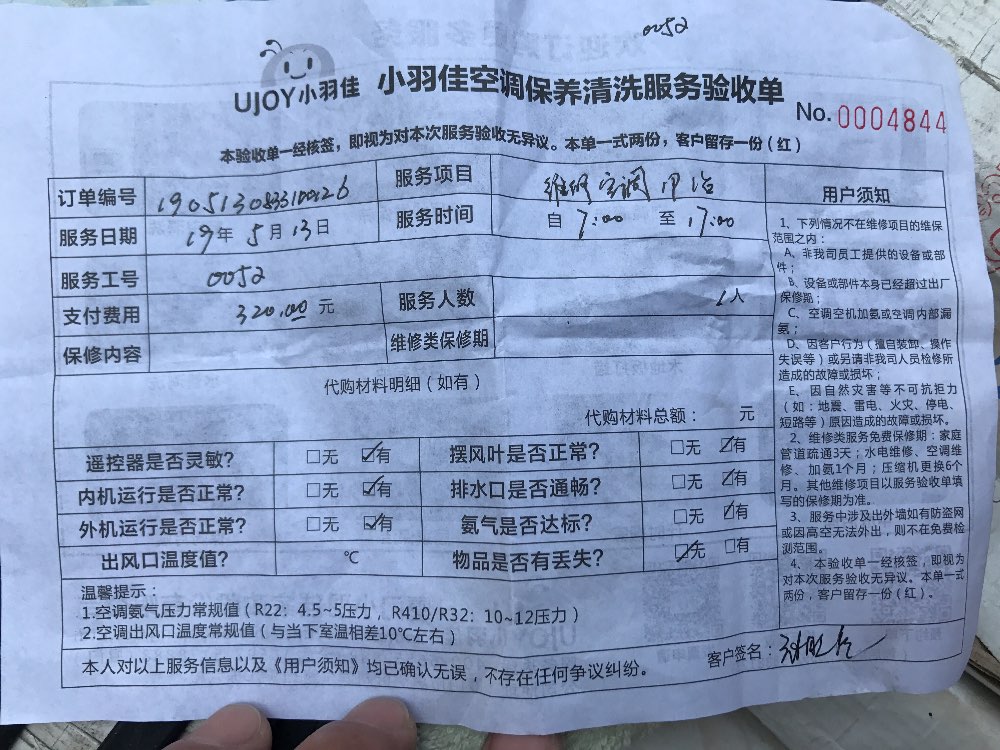 0052
UJOY小羽佳 小羽佳空调保养清洗服务验收单
No. 0004844
本验收单一经核签，即视为对本次服务验收无异议。本单一式两份，客户留存一份（红）
订单编号 服务项目 维修空调
服务日期 19年5月13日 服务时间 自7:00 至17:00
服务工号 0052
支付费用 320.00元 服务人数 1人
保修内容 维修类保修期
代购材料明细（如有）
代购材料总额： 元
遥控器是否灵敏? □无 ☑有 摆风叶是否正常? □无 ☑有
内机运行是否正常? □无 ☑有 排水口是否通畅? □无 ☑有
外机运行是否正常? □无 ☑有 氨气是否达标? □无 ☑有
出风口温度值? ℃ 物品是否有丢失? ☑无 □有
温馨提示：
1.空调氨气压力常规值（R22：4.5~5压力，R410/R32：10~12压力）
2.空调出风口温度常规值（与当下室温相差10℃左右）
本人对以上服务信息以及《用户须知》均已确认无误，不存在任何争议纠纷。
客户签名：
用户须知
1、下列情况不在维修项目的维保
范围之内：
A、非我司员工提供的设备或部
件；
B、设备或部件本身已经超过出厂
保修期；
C、空调空机加氨或空调内部漏
氨；
D、因客户行为（擅自装卸、操作
失误等）或另请非我司人员检修所
造成的故障或损坏；
E、因自然灾害等不可抗拒力
（如：地震、雷电、火灾、停电、
短路等）原因造成的故障或损坏。
2、维修类服务免费保修期：家庭
管道疏通3天；水电维修、空调维
修、加氨1个月；压缩机更换6个
月。其他维修项目以服务验收单填
写的保修期为准。
3、服务中涉及出外墙如有防盗网
或因高空无法外出，则不在免费检
测范围。
4、本验收单一经核签，即视为
对本次服务验收无异议。本单一式
两份，客户留存一份（红）。